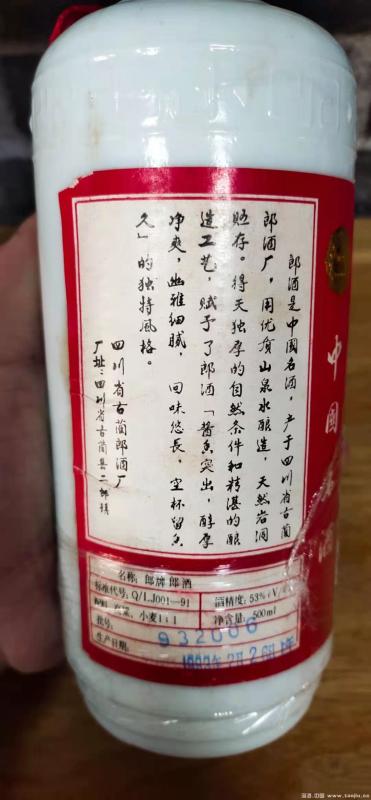 郎酒是中國名酒，产于四川省古藺
郎酒厂，用优质山泉水酿造，天然岩洞
贮存。得天独厚的自然条件和精湛的酿
造工艺，赋予了郎酒「醬香突出，醇厚
净爽，幽雅细腻，回味悠長，空杯留香
久」的独特风格。
四川省古藺郎酒厂
厂址：四川省古藺县二郎镇
中國
酒
名称：郎牌郎酒
标准代号：Q/LJ001—91 酒精度：53%(V/
高粱、小麦1：1 净含量：500ml
批号： 932006
生产日期：